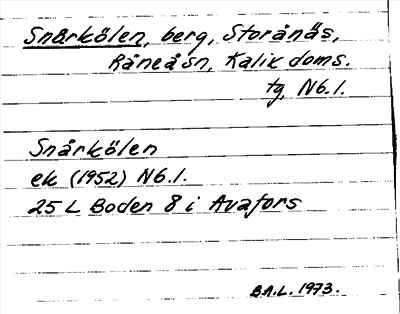 Snårkölen, berg, Storånäs,
Råneåsn, Kalix doms.
tg, Nb.l.
Snårkölen
ek (1952) Nb.l.
25 L Boden 8 i Avafors
B.A.L. 1973.